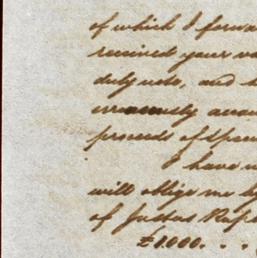 of which I forwa
received your va
duly note, and t
erroneously accou
proceeds of Spec
I have
will oblige me by
of Justus
£1000. . .